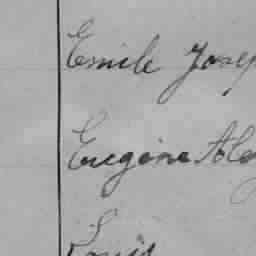 Emile Josep
Eugène Alex
Louis